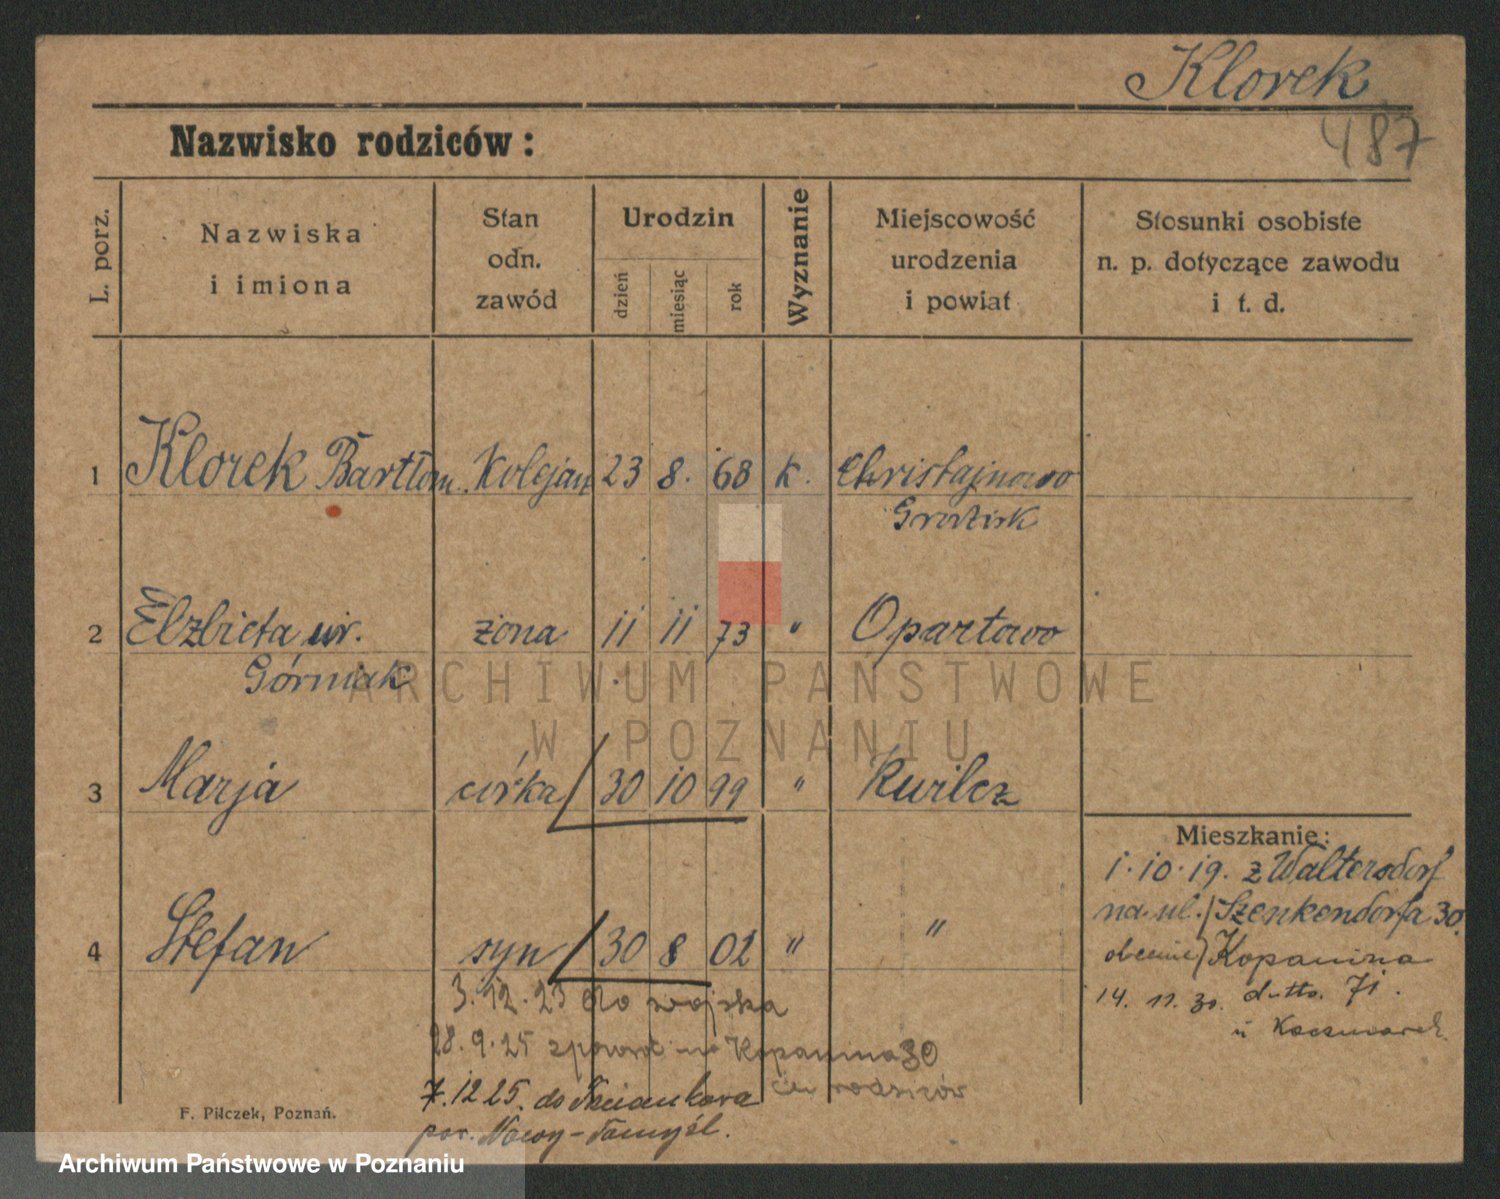 Klorek
487
Nazwisko rodziców:
L. porz.
Nazwiska
i imiona
Stan
odn.
zawód
Urodzin
dzień
miesiąc
rok
Wyznanie
Miejscowość
urodzenia
i powiat
Stosunki osobiste
n. p. dotyczące zawodu
i t. d.
1 Klorek Bartłom. Kolejarz 23 8. 68 K. Christajnowo
Grodzisk
2 Elzbieta ur. żona 11 11 73 " Opartowo
Górniak
3 Marja córka 30 10 99 " Kwilcz
4 Stefan syn 30 8 02 " "
3.12.23 do wojska
28.9.25 na Kopanina 30
rodziców
7.12 25. do
pow. Nowy-Tomyśl.
Mieszkanie:
1.10.19. z Waltersdorf
na ul. Szenkendorfa 30.
obecnie Kopanina
14. 11. 30. dtto. 71.
u Kaczmarek
F. Pilczek, Poznań.
ARCHIWUM PAŃSTWOWE
W POZNANIU
Archiwum Państwowe w Poznaniu